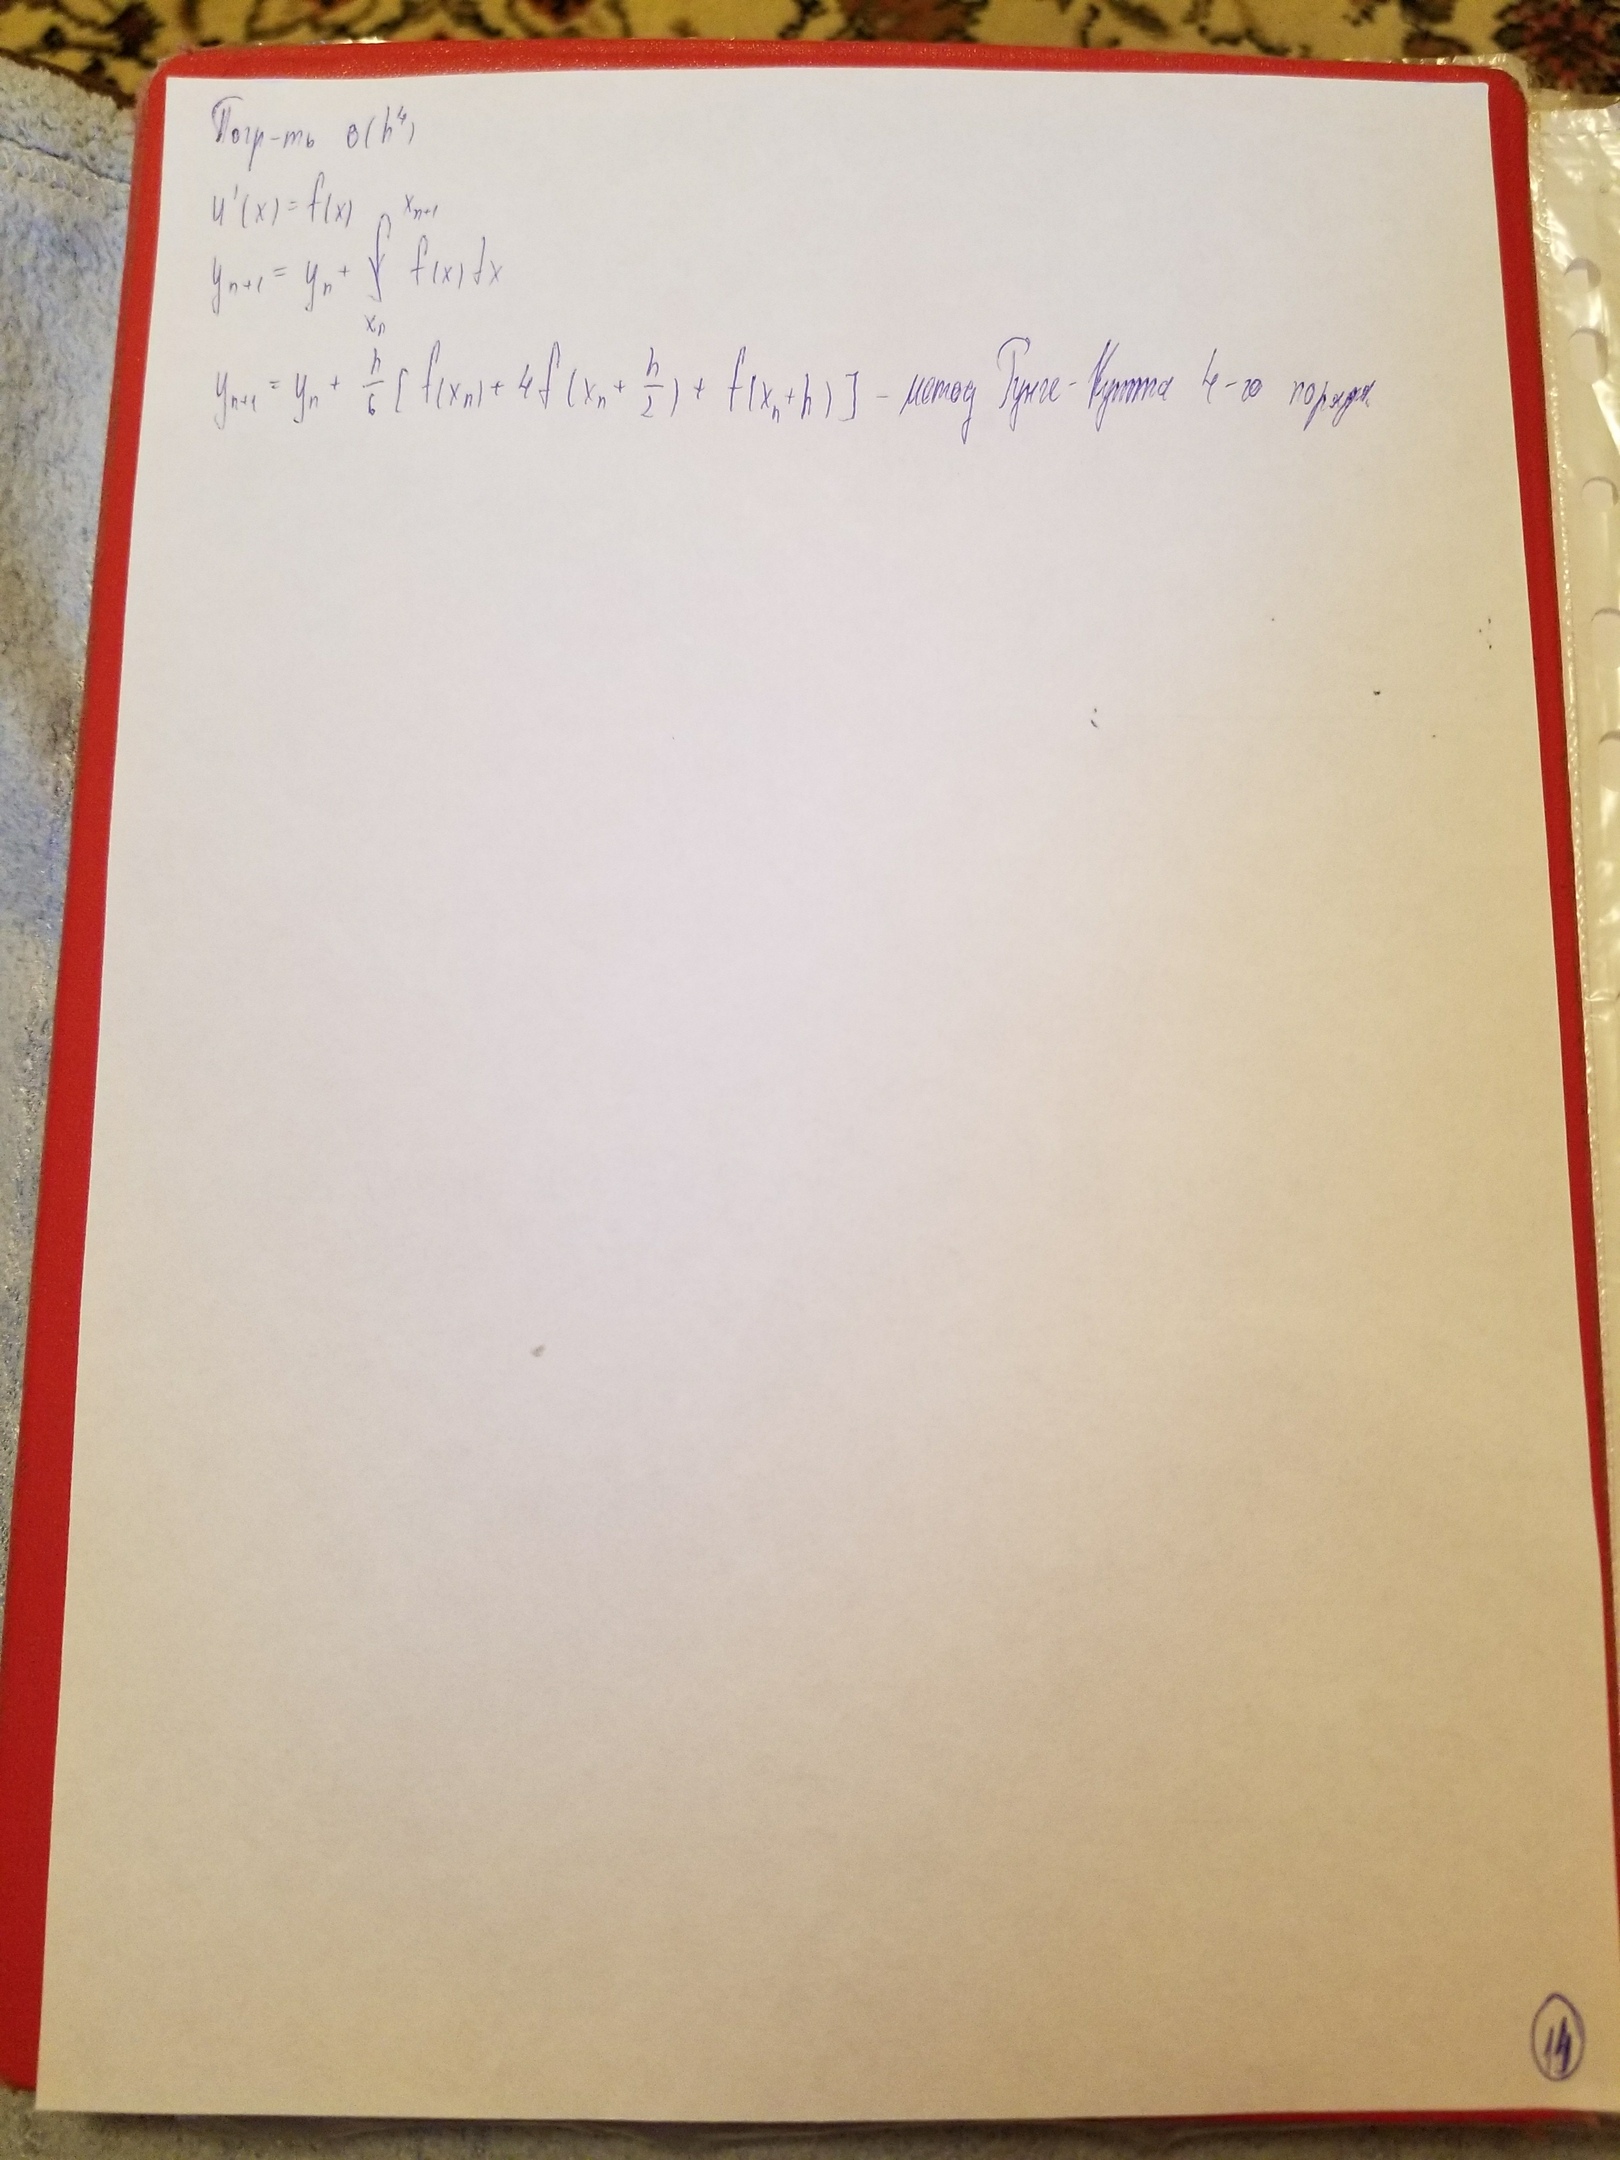 Погр-ть O(h⁴)
u'(x) = f(x)
yₙ₊₁ = yₙ + ∫_{xₙ}^{xₙ₊₁} f(x) dx
yₙ₊₁ = yₙ + h/6 [ f(xₙ) + 4f(xₙ + h/2) + f(xₙ + h) ] – метод Рунге-Кутта 4-го порядк
14